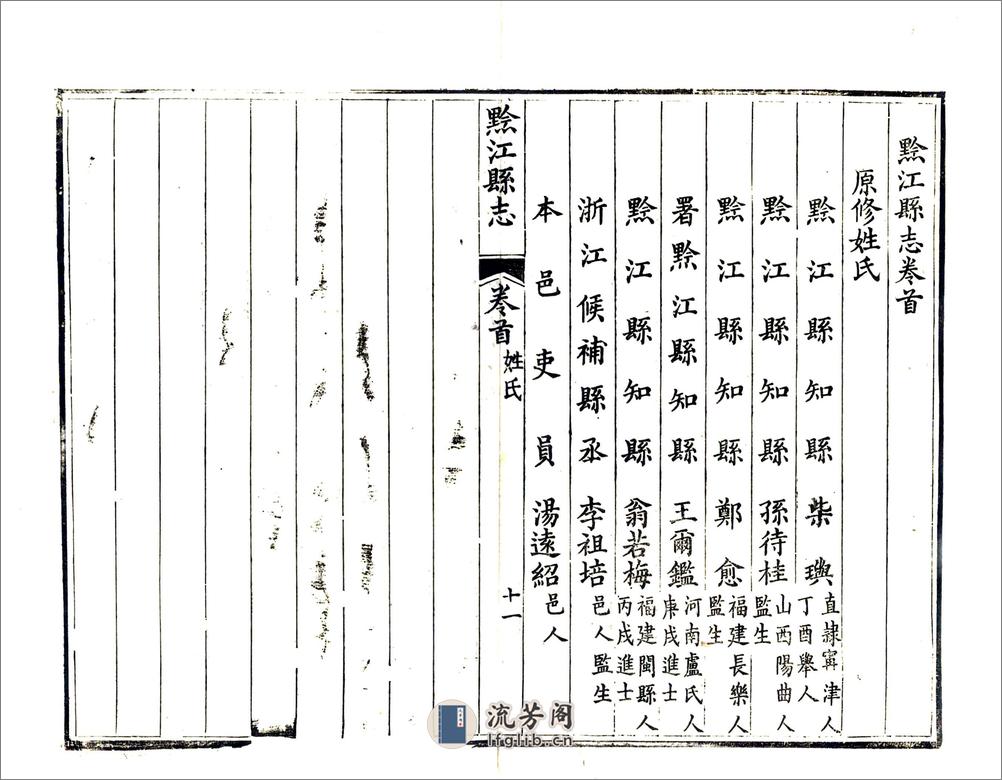 黔江縣志卷首
原修姓氏
黔江縣知縣柴璵直隸甯津人丁酉舉人
黔江縣知縣孫待桂山西陽曲人監生
黔江縣知縣鄭愈福建長樂人監生
署黔江縣知縣王爾鑑河南盧氏人庚戌進士
黔江縣知縣翁若梅福建閩縣人丙戌進士
浙江候補縣丞李祖培邑人監生
本邑吏員湯遠紹邑人
黔江縣志 卷首 姓氏 十一
流芳阁
lfglib.cn